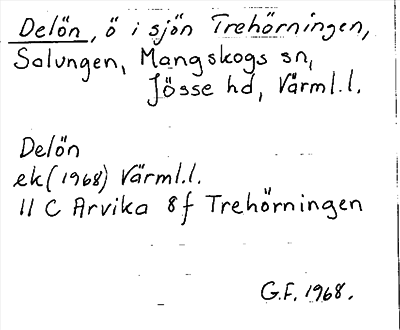 Delön, ö i sjön Trehörningen,
Salungen, Mangskogs sn,
Jösse hd, Värml.l.
Delön
ek(1968) Värml.l.
11 C Arvika 8f Trehörningen
G.F. 1968.